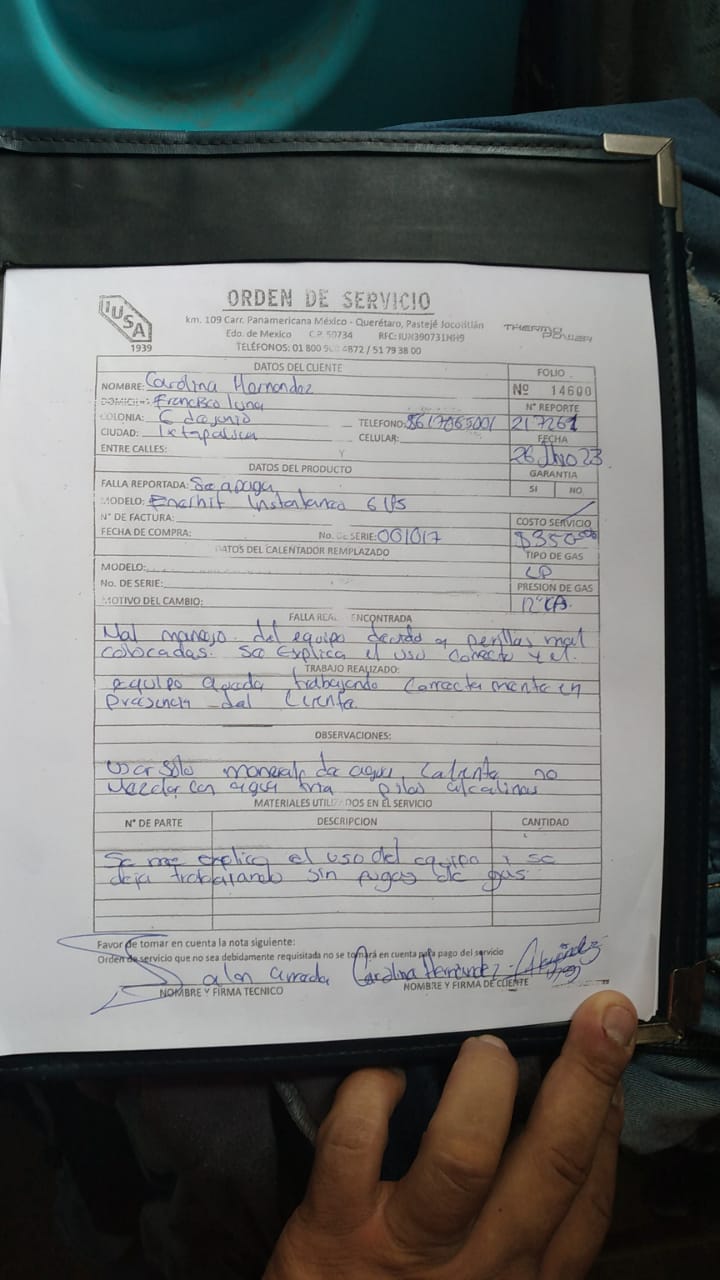 IUSA
1939
ORDEN DE SERVICIO
km. 109 Carr. Panamericana México - Querétaro, Pastejé Jocotitlán
Edo. de Mexico C.P. 50734 RFC: IUN390731NH9
TELÉFONOS: 01 800 4872 / 51 79 38 00
THERMO
DATOS DEL CLIENTE
FOLIO
NOMBRE: Carolina Hernandez
Nº 14600
DOMICILIO: Francisco luna
N° REPORTE
COLONIA:
TELEFONO: 5617065001
217261
CIUDAD: Ixtapaluca
CELULAR:
FECHA
ENTRE CALLES: Y
26 23
DATOS DEL PRODUCTO
GARANTIA
FALLA REPORTADA: Se apaga
SI NO
MODELO: Instantaneo 6
N° DE FACTURA:
COSTO SERVICIO
FECHA DE COMPRA: No. DE SERIE: 061017
$350.00
DATOS DEL CALENTADOR REMPLAZADO
TIPO DE GAS
MODELO:
LP
No. DE SERIE:
PRESION DE GAS
MOTIVO DEL CAMBIO:
FALLA REAL ENCONTRADA
Mal manejo del equipo devido a perillas mal
colocadas. Se explica el uso correcto y el
TRABAJO REALIZADO:
equipo queda trabajando correctamente en
presencia del cliente.
OBSERVACIONES:
Usar solo manerale de agua Caliente no
Mezclar con agua fria pilas alcalinas
MATERIALES UTILIZADOS EN EL SERVICIO
N° DE PARTE DESCRIPCION CANTIDAD
Se me explica el uso del equipo y se
deja trabajando sin fugas de gas
Favor de tomar en cuenta la nota siguiente:
Orden de servicio que no sea debidamente requisitada no se tomará en cuenta para pago del servicio
Carolina Hernández
NOMBRE Y FIRMA TECNICO NOMBRE Y FIRMA DE CLIENTE